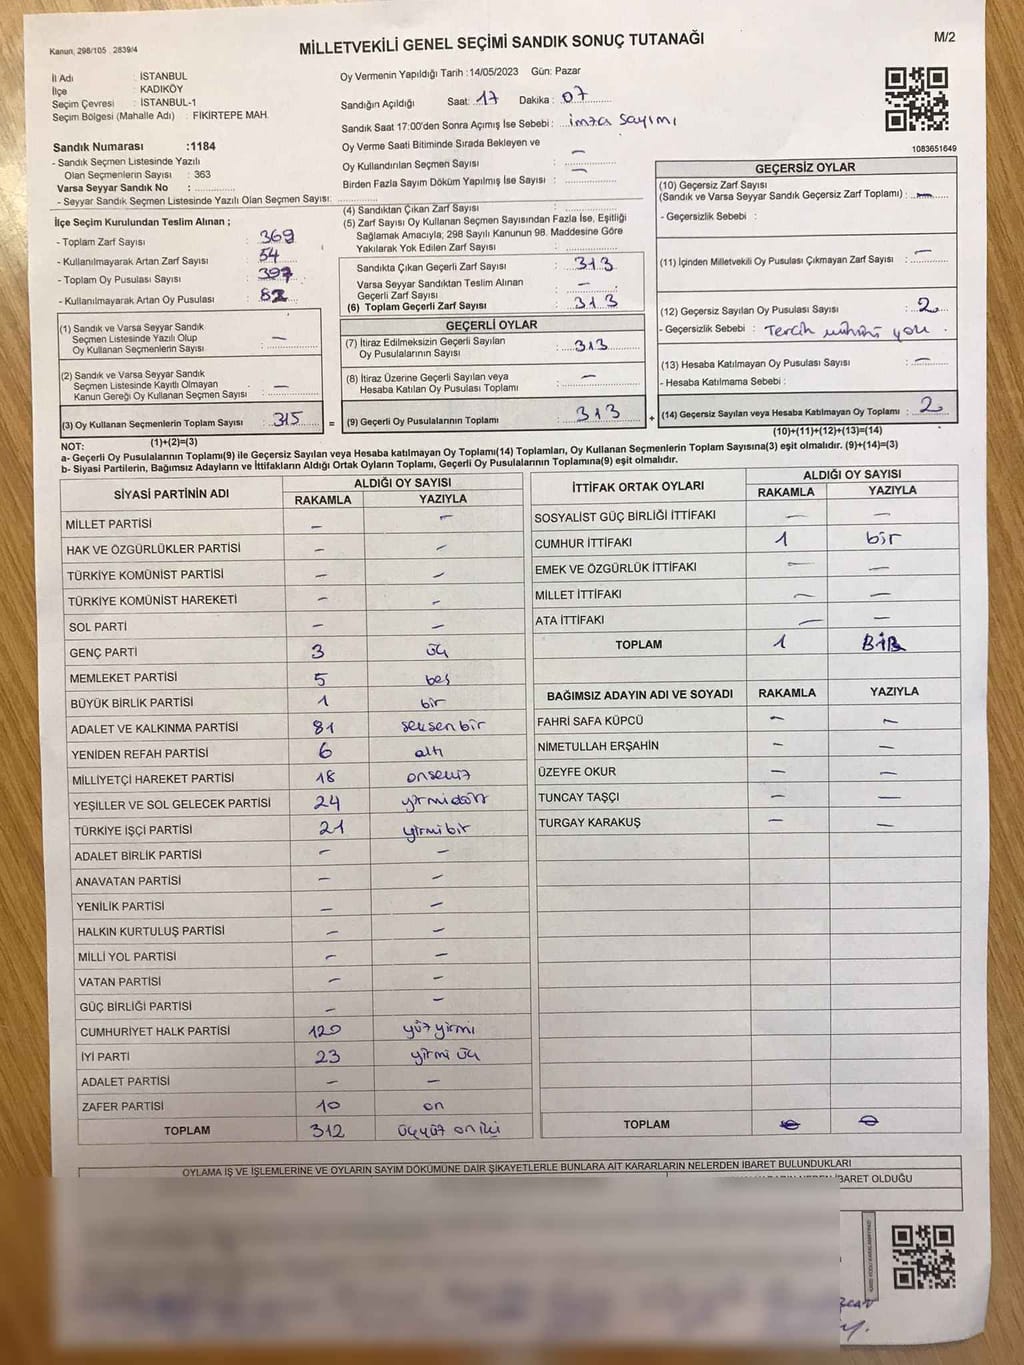 Kanun, 298/105 , 2839/4
MİLLETVEKİLİ GENEL SEÇİMİ SANDIK SONUÇ TUTANAĞI
M/2
İl Adı : İSTANBUL
İlçe : KADIKÖY
Seçim Çevresi : İSTANBUL-1
Seçim Bölgesi (Mahalle Adı) : FİKİRTEPE MAH.
Oy Vermenin Yapıldığı Tarih :14/05/2023 Gün: Pazar
Sandığın Açıldığı Saat: 17 Dakika : 07
Sandık Saat 17:00'den Sonra Açımış İse Sebebi : imza sayımı
Sandık Numarası :1184
- Sandık Seçmen Listesinde Yazılı
Olan Seçmenlerin Sayısı : 363
Varsa Seyyar Sandık No :
- Seyyar Sandık Seçmen Listesinde Yazılı Olan Seçmen Sayısı:
Oy Verme Saati Bitiminde Sırada Bekleyen ve
Oy Kullandırılan Seçmen Sayısı : —
Birden Fazla Sayım Döküm Yapılmış İse Sayısı : —
1083651649
İlçe Seçim Kurulundan Teslim Alınan ;
- Toplam Zarf Sayısı : 369
- Kullanılmayarak Artan Zarf Sayısı : 54
- Toplam Oy Pusulası Sayısı : 397
- Kullanılmayarak Artan Oy Pusulası : 82
(1) Sandık ve Varsa Seyyar Sandık
Seçmen Listesinde Yazılı Olup
Oy Kullanan Seçmenlerin Sayısı : —
(2) Sandık ve Varsa Seyyar Sandık
Seçmen Listesinde Kayıtlı Olmayan
Kanun Gereği Oy Kullanan Seçmen Sayısı : —
(3) Oy Kullanan Seçmenlerin Toplam Sayısı : 315
(1)+(2)=(3)
(4) Sandıktan Çıkan Zarf Sayısı :
(5) Zarf Sayısı Oy Kullanan Seçmen Sayısından Fazla İse, Eşitliği
Sağlamak Amacıyla; 298 Sayılı Kanunun 98. Maddesine Göre
Yakılarak Yok Edilen Zarf Sayısı :
Sandıkta Çıkan Geçerli Zarf Sayısı : 313
Varsa Seyyar Sandıktan Teslim Alınan
Geçerli Zarf Sayısı : —
(6) Toplam Geçerli Zarf Sayısı : 313
GEÇERLİ OYLAR
(7) İtiraz Edilmeksizin Geçerli Sayılan
Oy Pusulalarının Sayısı : 313
(8) İtiraz Üzerine Geçerli Sayılan veya
Hesaba Katılan Oy Pusulası Toplamı : —
= (9) Geçerli Oy Pusulalarının Toplamı : 313 +
GEÇERSİZ OYLAR
(10) Geçersiz Zarf Sayısı
(Sandık ve Varsa Seyyar Sandık Geçersiz Zarf Toplamı) : —
- Geçersizlik Sebebi :
(11) İçinden Milletvekili Oy Pusulası Çıkmayan Zarf Sayısı : —
(12) Geçersiz Sayılan Oy Pusulası Sayısı : 2
- Geçersizlik Sebebi : Tercih mührü yok.
(13) Hesaba Katılmayan Oy Pusulası Sayısı : —
- Hesaba Katılmama Sebebi :
(14) Geçersiz Sayılan veya Hesaba Katılmayan Oy Toplamı : 2
(10)+(11)+(12)+(13)=(14)
NOT:
a- Geçerli Oy Pusulalarının Toplamı(9) ile Geçersiz Sayılan veya Hesaba katılmayan Oy Toplamı(14) Toplamları, Oy Kullanan Seçmenlerin Toplam Sayısına(3) eşit olmalıdır. (9)+(14)=(3)
b- Siyasi Partilerin, Bağımsız Adayların ve İttifakların Aldığı Ortak Oyların Toplamı, Geçerli Oy Pusulalarının Toplamına(9) eşit olmalıdır.
SİYASİ PARTİNİN ADI ALDIĞI OY SAYISI
RAKAMLA YAZIYLA
MİLLET PARTİSİ — —
HAK VE ÖZGÜRLÜKLER PARTİSİ — —
TÜRKİYE KOMÜNİST PARTİSİ — —
TÜRKİYE KOMÜNİST HAREKETİ — —
SOL PARTİ — —
GENÇ PARTİ 3 üç
MEMLEKET PARTİSİ 5 beş
BÜYÜK BİRLİK PARTİSİ 1 bir
ADALET VE KALKINMA PARTİSİ 81 seksenbir
YENİDEN REFAH PARTİSİ 6 altı
MİLLİYETÇİ HAREKET PARTİSİ 18 onsekiz
YEŞİLLER VE SOL GELECEK PARTİSİ 24 yirmidört
TÜRKİYE İŞÇİ PARTİSİ 21 yirmibir
ADALET BİRLİK PARTİSİ — —
ANAVATAN PARTİSİ — —
YENİLİK PARTİSİ — —
HALKIN KURTULUŞ PARTİSİ — —
MİLLİ YOL PARTİSİ — —
VATAN PARTİSİ — —
GÜÇ BİRLİĞİ PARTİSİ — —
CUMHURİYET HALK PARTİSİ 120 yüz yirmi
İYİ PARTİ 23 yirmi üç
ADALET PARTİSİ — —
ZAFER PARTİSİ 10 on
TOPLAM 312 üçyüz oniki
İTTİFAK ORTAK OYLARI ALDIĞI OY SAYISI
RAKAMLA YAZIYLA
SOSYALİST GÜÇ BİRLİĞİ İTTİFAKI — —
CUMHUR İTTİFAKI 1 bir
EMEK VE ÖZGÜRLÜK İTTİFAKI — —
MİLLET İTTİFAKI — —
ATA İTTİFAKI — —
TOPLAM 1 BİR
BAĞIMSIZ ADAYIN ADI VE SOYADI RAKAMLA YAZIYLA
FAHRİ SAFA KÜPCÜ — —
NİMETULLAH ERŞAHİN — —
ÜZEYFE OKUR — —
TUNCAY TAŞÇI — —
TURGAY KARAKUŞ — —
TOPLAM
OYLAMA İŞ VE İŞLEMLERİNE VE OYLARIN SAYIM DÖKÜMÜNE DAİR ŞİKAYETLERLE BUNLARA AİT KARARLARIN NELERDEN İBARET BULUNDUKLARI
İBARET OLDUĞU